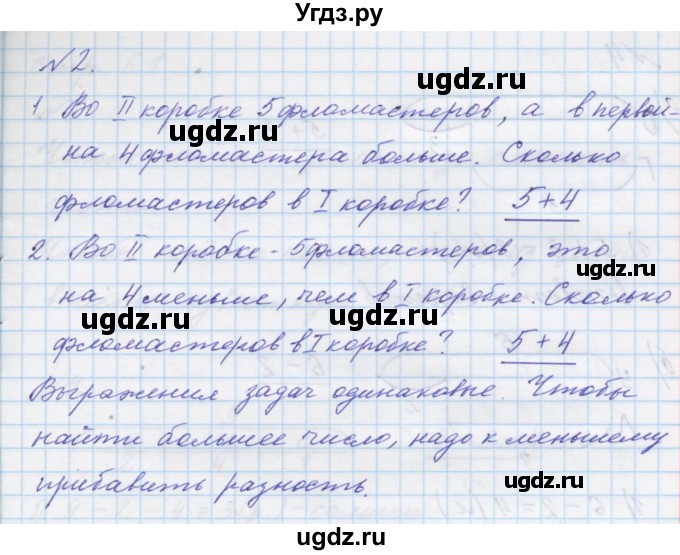 Угдз.ру
№2.
1. Во II коробке 5 фломастеров, а в первой-
на 4 фломастера больше. Сколько
фломастеров в I коробке? 5+4
2. Во II коробке - 5 фломастеров, это
на 4 меньше, чем в I коробке. Сколько
фломастеров в I коробке? 5+4
Выражения задач одинаковые. Чтобы
найти большее число, надо к меньшему
прибавить разность.
ugdz.ru
ugdz.ru
ugdz.ru
ugdz.ru
ugdz.ru
ugdz.ru
ugdz.ru
ugdz.ru
ugdz.ru